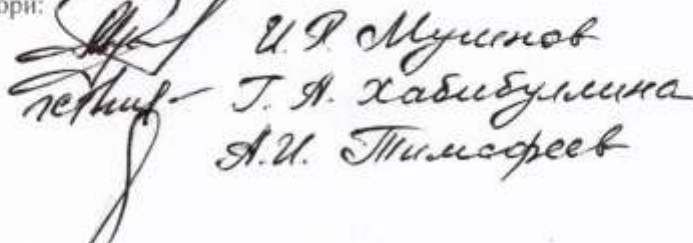 ори:
И. Р. Муминов
Г. А. Хабибуллина
А. И. Тимофеев